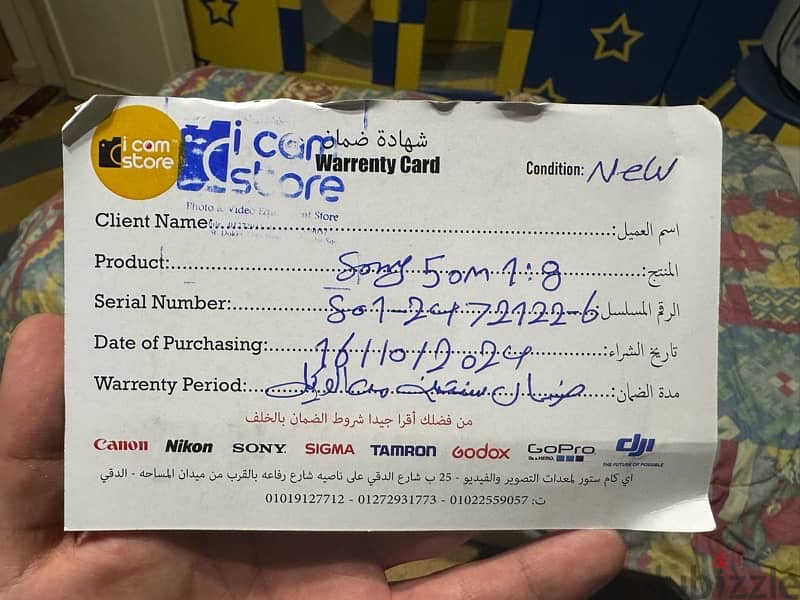 i cam store
i cam store
شهادة ضمان
Warrenty Card
Condition: New
Photo & Video Store
Client Name: اسم العميل:
Product: Sony 50m 1:8 المنتج:
Serial Number: S01-2472122-6 الرقم المسلسل
Date of Purchasing: 16/10/2024 تاريخ الشراء:
Warrenty Period: ضمان سنتين من الوكيل مدة الضمان:
من فضلك أقرا جيدا شروط الضمان بالخلف
Canon Nikon SONY SIGMA TAMRON Godox GoPro dji
Be a HERO. THE FUTURE OF POSSIBLE
اي كام ستور لمعدات التصوير والفيديو - 25 ب شارع الدقي على ناصيه شارع رفاعه بالقرب من ميدان المساحه - الدقي
ت: 01022559057 - 01272931773 - 01019127712
dubizzle